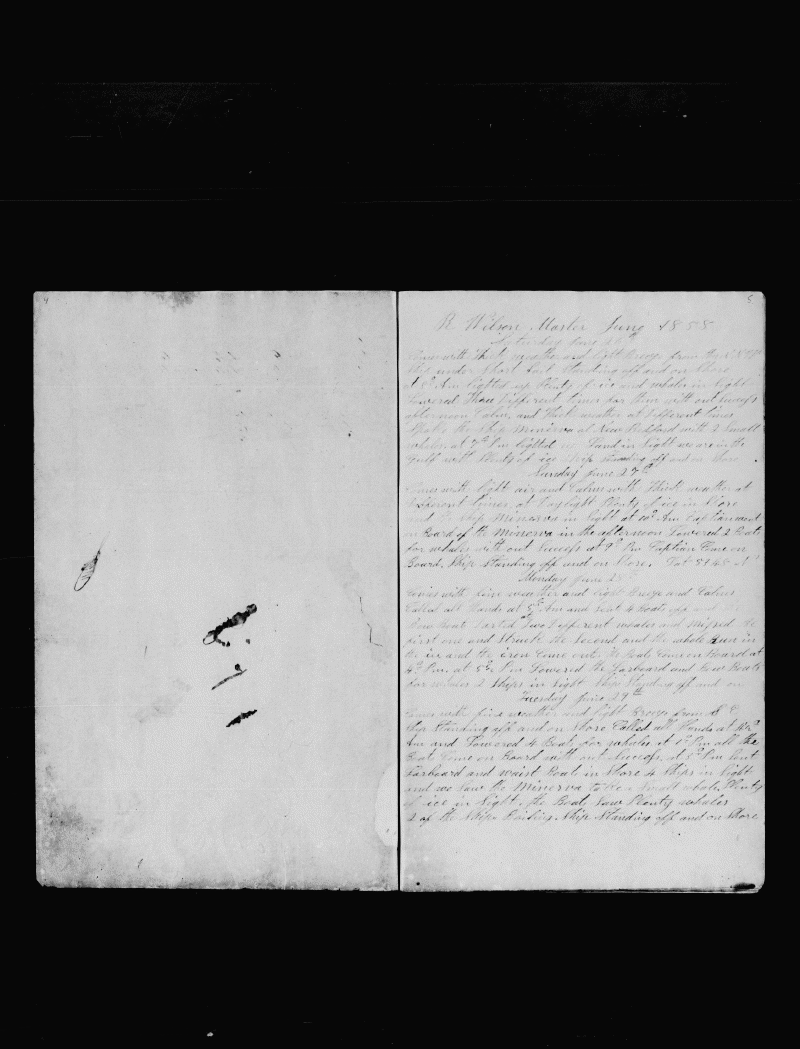 4
5
R Wilson Master June 1858
Saturday June 26th
Comes with Thick weather and light Breeze from the
Ship under Short Sail Standing off and on Shore
at Am lighted up Plenty of ice and whales in Sight
Lowered Three Different times for them with out Success
afternoon Calm, and Thick weather at Different times
Spoke the Ship Minerva of New Bedford with 2 Small
whales at 7 Pm lighted up Land in Sight we are in the
Gulf with Plenty of ice Ship standing off and on Shore
Sunday June 27th
Comes with light air and Calms with Thick weather at
Different times, at Daylight Plenty of ice in Shore
and the Ship Minerva in Sight at 10 Am Captian went
on Board of the Minerva in the afternoon Lowered 2 Boats
for whales with out Success at 9 Pm Captian Came on
Board, Ship standing off and on Shore. Lat 54.45
Monday June 28th
Comes with fine weather and light Breeze and Calms
Called all Hands at 5 Am and Sent 4 Boats off and the
Bow Boat Darted Two Different whales and missed the
first one and Struck the Second and the whale Run in
the ice and the iron Come out the Boats Come on Board at
4 Pm. at 5 Pm Lowered the Larboard and Bow Boats
for whales 2 Ships in Sight Ship Standing off and on
Tuesday June 29th
Comes with fine weather and light Breeze from
Ship Standing off and on Shore Called all Hands at
Am and Lowered 4 Boats for whales at Pm all the
Boats Come on Board with out Success, at 5 Pm Sent
Larboard and waist Boat in Shore 4 Ships in Sight
and we Saw the Minerva take a Small whale Plenty
of ice in Sight, the Boats Saw Plenty whales
2 of the Ships Boiling. Ship Standing off and on Shore.